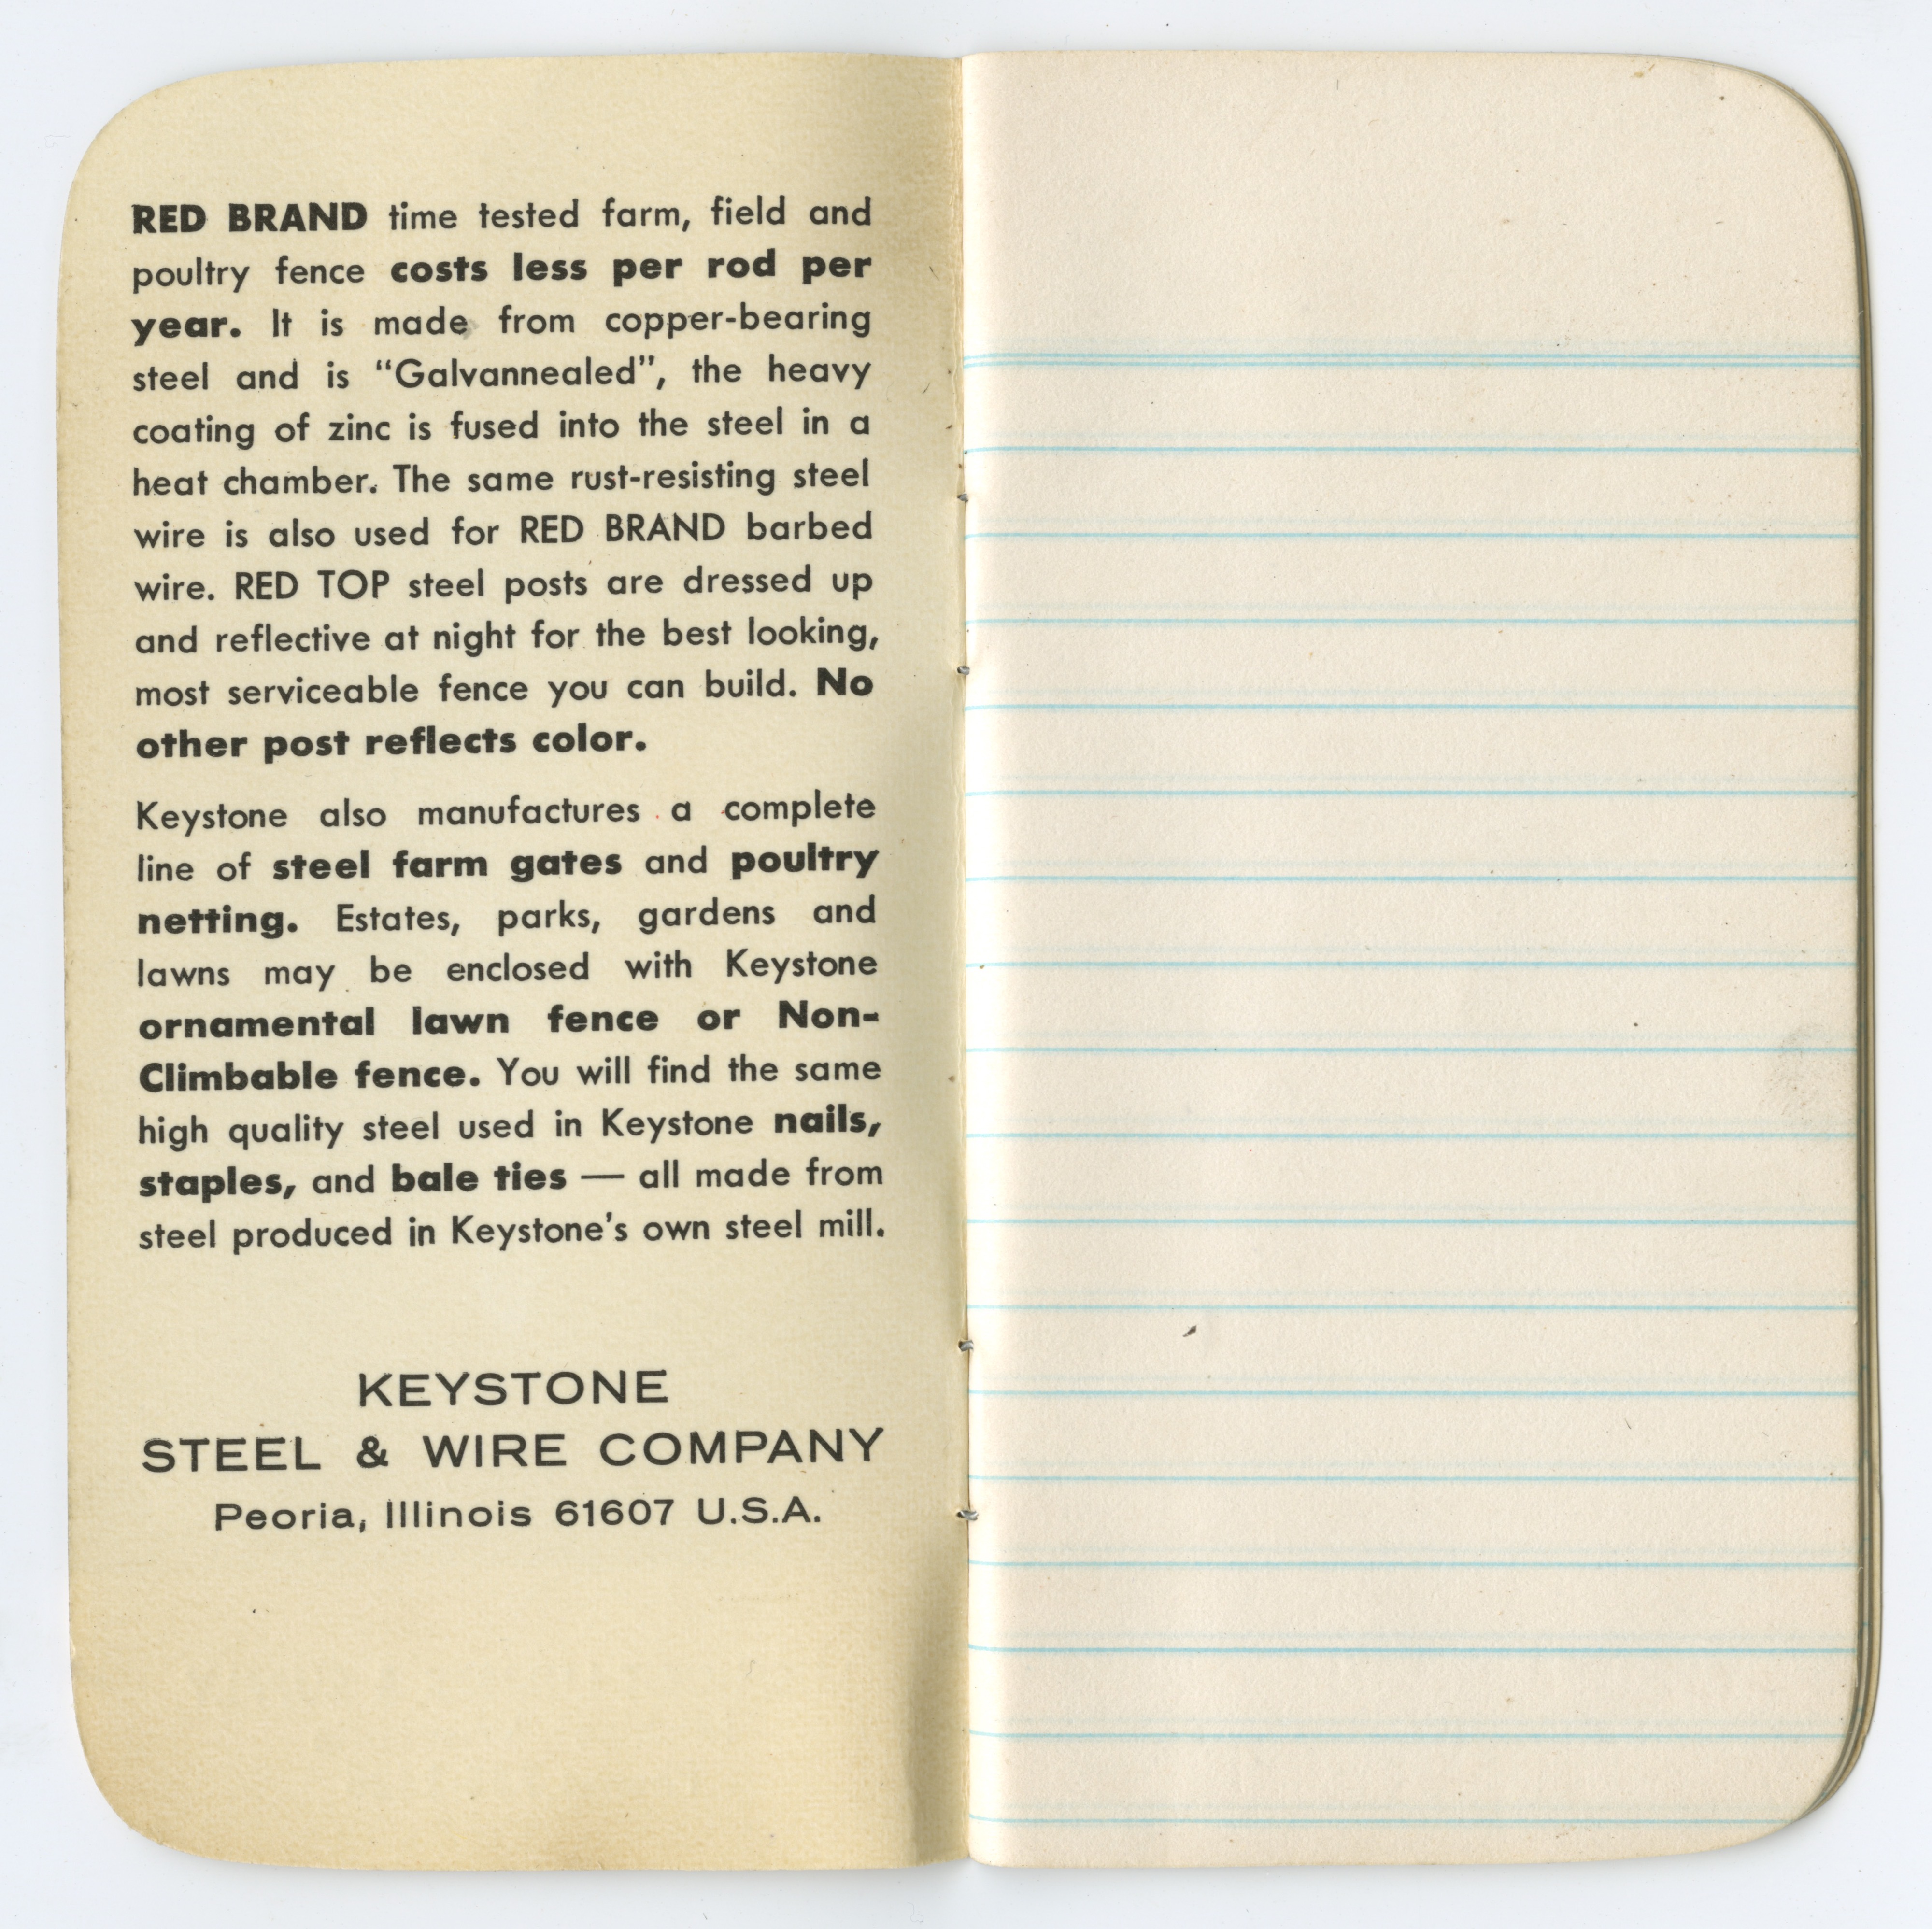 RED BRAND time tested farm, field and
poultry fence costs less per rod per
year. It is made from copper-bearing
steel and is “Galvannealed”, the heavy
coating of zinc is fused into the steel in a
heat chamber. The same rust-resisting steel
wire is also used for RED BRAND barbed
wire. RED TOP steel posts are dressed up
and reflective at night for the best looking,
most serviceable fence you can build. No
other post reflects color.
Keystone also manufactures a complete
line of steel farm gates and poultry
netting. Estates, parks, gardens and
lawns may be enclosed with Keystone
ornamental lawn fence or Non-
Climbable fence. You will find the same
high quality steel used in Keystone nails,
staples, and bale ties — all made from
steel produced in Keystone’s own steel mill.
KEYSTONE
STEEL & WIRE COMPANY
Peoria, Illinois 61607 U.S.A.